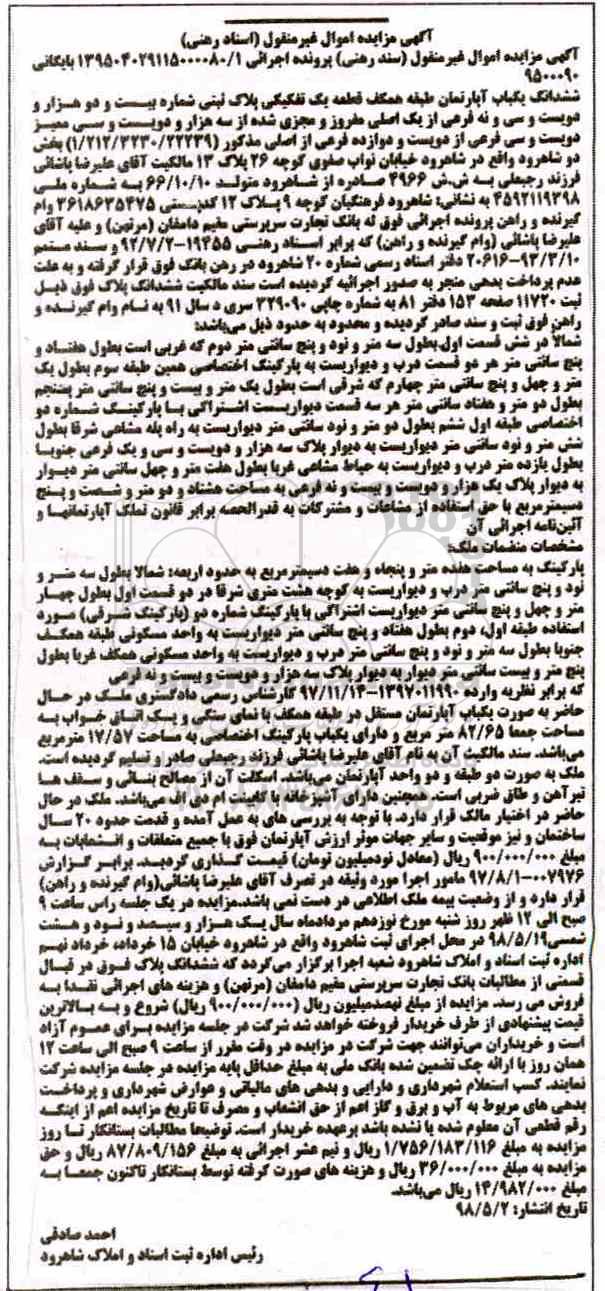 آگهی مزایده اموال غیرمنقول (اسناد رهنی)
آگهی مزایده اموال غیرمنقول (سند رهنی) پرونده اجرائی ۱۳۹۵۰۴۰۲۹۱۱۵۰۰۰۰۸۰/۱ بایگانی
۹۵۰۰۰۹۰
ششدانگ یکباب آپارتمان طبقه همکف قطعه یک تفکیکی پلاک ثبتی شماره بیست و دو هزار و
دویست و سی و نه فرعی از یک اصلی مفروز و مجزی شده از سه هزار و دویست و سی ممیز
دویست و سی فرعی از دویست و دوازده فرعی از اصلی مذکور (۱/۲۱۲/۳۲۳۰/۲۲۲۳۹) بخش
دو شاهرود واقع در شاهرود خیابان نواب صفوی کوچه ۲۶ پلاک ۱۳ مالکیت آقای علیرضا پاشائی
فرزند رجبعلی به ش.ش ۴۹۶۶ صادره از شاهرود متولد ۶۶/۱۰/۱۰ به شماره ملی
۴۵۹۲۱۱۹۳۹۸ به نشانی: شاهرود فرهنگیان کوچه ۹ پلاک ۱۲ کدپستی ۳۶۱۸۶۳۵۴۷۵ وام
گیرنده و راهن پرونده اجرائی فوق له بانک تجارت سرپرستی مقیم دامغان (مرتهن) و علیه آقای
علیرضا پاشائی (وام گیرنده و راهن) که برابر اسناد رهنی ۱۹۴۵۵-۹۲/۷/۲ و سند متمم
۲۰۶۱۶-۹۳/۳/۱۰ دفتر اسناد رسمی شماره ۲۰ شاهرود در رهن بانک فوق قرار گرفته و به علت
عدم پرداخت بدهی منجر به صدور اجرائیه گردیده است سند مالکیت ششدانگ پلاک فوق ذیل
ثبت ۱۱۷۲۰ صفحه ۱۵۳ دفتر ۸۱ به شماره چاپی ۳۲۹۰۹۰ سری د سال ۹۱ به نام وام گیرنده و
راهن فوق ثبت و سند صادر گردیده و محدود به حدود ذیل می‌باشد:
شمالاً در شش قسمت اول بطول سه متر و نود و پنج سانتی متر دوم که غربی است بطول هفتاد و
پنج سانتی متر هر دو قسمت درب و دیواریست به پارکینگ اختصاصی همین طبقه سوم بطول یک
متر و چهل و پنج سانتی متر چهارم که شرقی است بطول یک متر و بیست و پنج سانتی متر پنجم
بطول دو متر و هفتاد سانتی متر هر سه قسمت دیواریست اشتراکی با پارکینگ شماره دو
اختصاصی طبقه اول ششم بطول دو متر و نود سانتی متر دیواریست به راه پله مشاعی شرقا بطول
شش متر و نود سانتی متر دیواریست به دیوار پلاک سه هزار و دویست و سی و یک فرعی جنوبا
بطول یازده متر درب و دیواریست به حیاط مشاعی غربا بطول هفت متر و چهل سانتی متر دیوار
به دیوار پلاک یک هزار و دویست و بیست و نه فرعی به مساحت هشتاد و دو متر و شصت و پنج
دسیمترمربع با حق استفاده از مشاعات و مشترکات به قدرالحصه برابر قانون تملک آپارتمانها و
آئین‌نامه اجرائی آن
مشخصات منضمات ملک:
پارکینگ به مساحت هفده متر و پنجاه و هفت دسیمترمربع به حدود اربعه: شمالا بطول سه متر و
نود و پنج سانتی متر درب و دیواریست به کوچه هشت متری شرقا در دو قسمت اول بطول چهار
متر و چهل و پنج سانتی متر دیواریست اشتراکی با پارکینگ شماره دو (پارکینگ شرقی) مورد
استفاده طبقه اول، دوم بطول هفتاد و پنج سانتی متر دیواریست به واحد مسکونی طبقه همکف
جنوبا بطول سه متر و نود و پنج سانتی متر درب و دیواریست به واحد مسکونی همکف غربا بطول
پنج متر و بیست سانتی متر دیوار به دیوار پلاک سه هزار و دویست و بیست و نه فرعی
که برابر نظریه وارده ۱۳۹۷۰۱۱۹۹۰-۹۷/۱۱/۱۴ کارشناس رسمی دادگستری ملک در حال
حاضر به صورت یکباب آپارتمان مستقل در طبقه همکف با نمای سنگی و یک اتاق خواب به
مساحت جمعا ۸۲/۶۵ متر مربع و دارای یکباب پارکینگ اختصاصی به مساحت ۱۷/۵۷ مترمربع
می‌باشد. سند مالکیت آن به نام آقای علیرضا پاشائی فرزند رجبعلی صادر و تسلیم گردیده است.
ملک به صورت دو طبقه و دو واحد آپارتمان می‌باشد. اسکلت آن از مصالح بنائی و سقف ها
تیرآهن و طاق ضربی است. همچنین دارای آشپزخانه با کابینت ام دی اف می‌باشد. ملک در حال
حاضر در اختیار مالک قرار دارد. با توجه به بررسی های به عمل آمده و قدمت حدود ۲۰ سال
ساختمان و نیز موقعیت و سایر جهات موثر ارزش آپارتمان فوق با جمیع متعلقات و انشعابات به
مبلغ ۹۰۰/۰۰۰/۰۰۰ ریال (معادل نودمیلیون تومان) قیمت گذاری گردید. برابر گزارش
۰۰۷۹۷۶-۹۷/۸/۱ مامور اجرا مورد وثیقه در تصرف آقای علیرضا پاشائی(وام گیرنده و راهن)
قرار دارد و از وضعیت بیمه ملک اطلاعی در دست نمی باشد.مزایده در یک جلسه راس ساعت ۹
صبح الی ۱۲ ظهر روز شنبه مورخ نوزدهم مردادماه سال یک هزار و سیصد و نود و هشت
شمسی۹۸/۵/۱۹ در محل اجرای ثبت شاهرود واقع در شاهرود خیابان ۱۵ خرداد، خرداد نهم
اداره ثبت اسناد و املاک شاهرود شعبه اجرا برگزار می‌گردد که ششدانگ پلاک فوق در قبال
قسمتی از مطالبات بانک تجارت سرپرستی مقیم دامغان (مرتهن) و هزینه های اجرائی نقدا به
فروش می رسد. مزایده از مبلغ نهصدمیلیون ریال (۹۰۰/۰۰۰/۰۰۰ ریال) شروع و به بالاترین
قیمت پیشنهادی از طرف خریدار فروخته خواهد شد شرکت در جلسه مزایده برای عموم آزاد
است و خریداران می‌توانند جهت شرکت در مزایده در وقت مقرر از ساعت ۹ صبح الی ساعت ۱۲
همان روز با ارائه چک تضمین شده بانک ملی به مبلغ حداقل پایه مزایده در جلسه مزایده شرکت
نمایند. کسب استعلام شهرداری و دارایی و بدهی های مالیاتی و عوارض شهرداری و پرداخت
بدهی های مربوط به آب و برق و گاز اعم از حق انشعاب و مصرف تا تاریخ مزایده اعم از اینکه
رقم قطعی آن معلوم شده یا نشده باشد برعهده خریدار است. توضیحا مطالبات بستانکار تا روز
مزایده به مبلغ ۱/۷۵۶/۱۸۳/۱۱۶ ریال و نیم عشر اجرائی به مبلغ ۸۷/۸۰۹/۱۵۶ ریال و حق
مزایده به مبلغ ۳۶/۰۰۰/۰۰۰ ریال و هزینه های صورت گرفته توسط بستانکار تاکنون جمعا به
مبلغ ۱۴/۹۸۲/۰۰۰ ریال می‌باشد.
تاریخ انتشار: ۹۸/۵/۲
احمد صادقی
رئیس اداره ثبت اسناد و املاک شاهرود